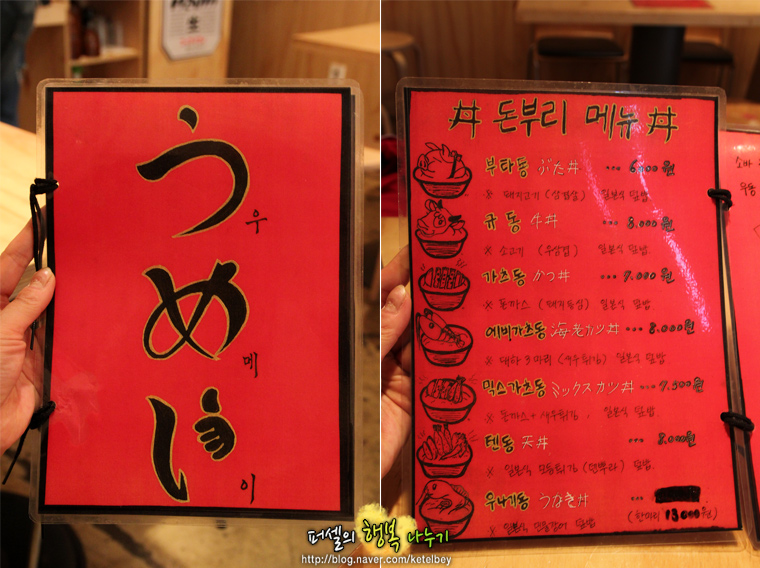 う
우
め
메
い
이
丼 돈부리 메뉴 丼
부타동 ぶた丼 6,000원
※ 돼지고기 (삼겹살) 일본식 덮밥
규동 牛丼 8,000원
※ 소고기 (우삼겹) 일본식 덮밥
가츠동 かつ丼 7,000원
※ 돈까스 (돼지등심) 일본식 덮밥
에비가츠동 海老カツ丼 8,000원
※ 대하 3마리 (새우튀김) 일본식 덮밥
믹스가츠동 ミックスカツ丼 7,500원
※ 돈까스 + 새우튀김, 일본식 덮밥
텐동 天丼 8,000원
※ 일본식 모듬튀김 (덴뿌라) 덮밥
우나기동 うなぎ丼
(한마리 13,000원)
※ 일본식 민물장어 덮밥
소바
우동
퍼셀의 행복 나누기
http://blog.naver.com/ketelbey